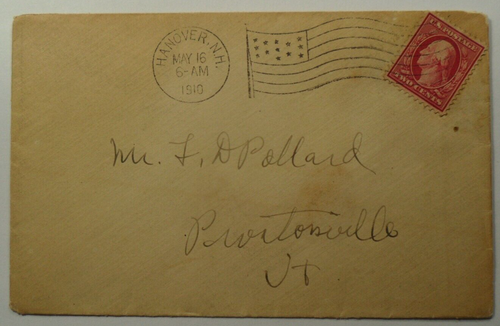 HANOVER, N.H.
MAY 16
6-AM
1910
U.S. POSTAGE
TWO CENTS
Mr. F. D Pollard
Proctorsville
Vt